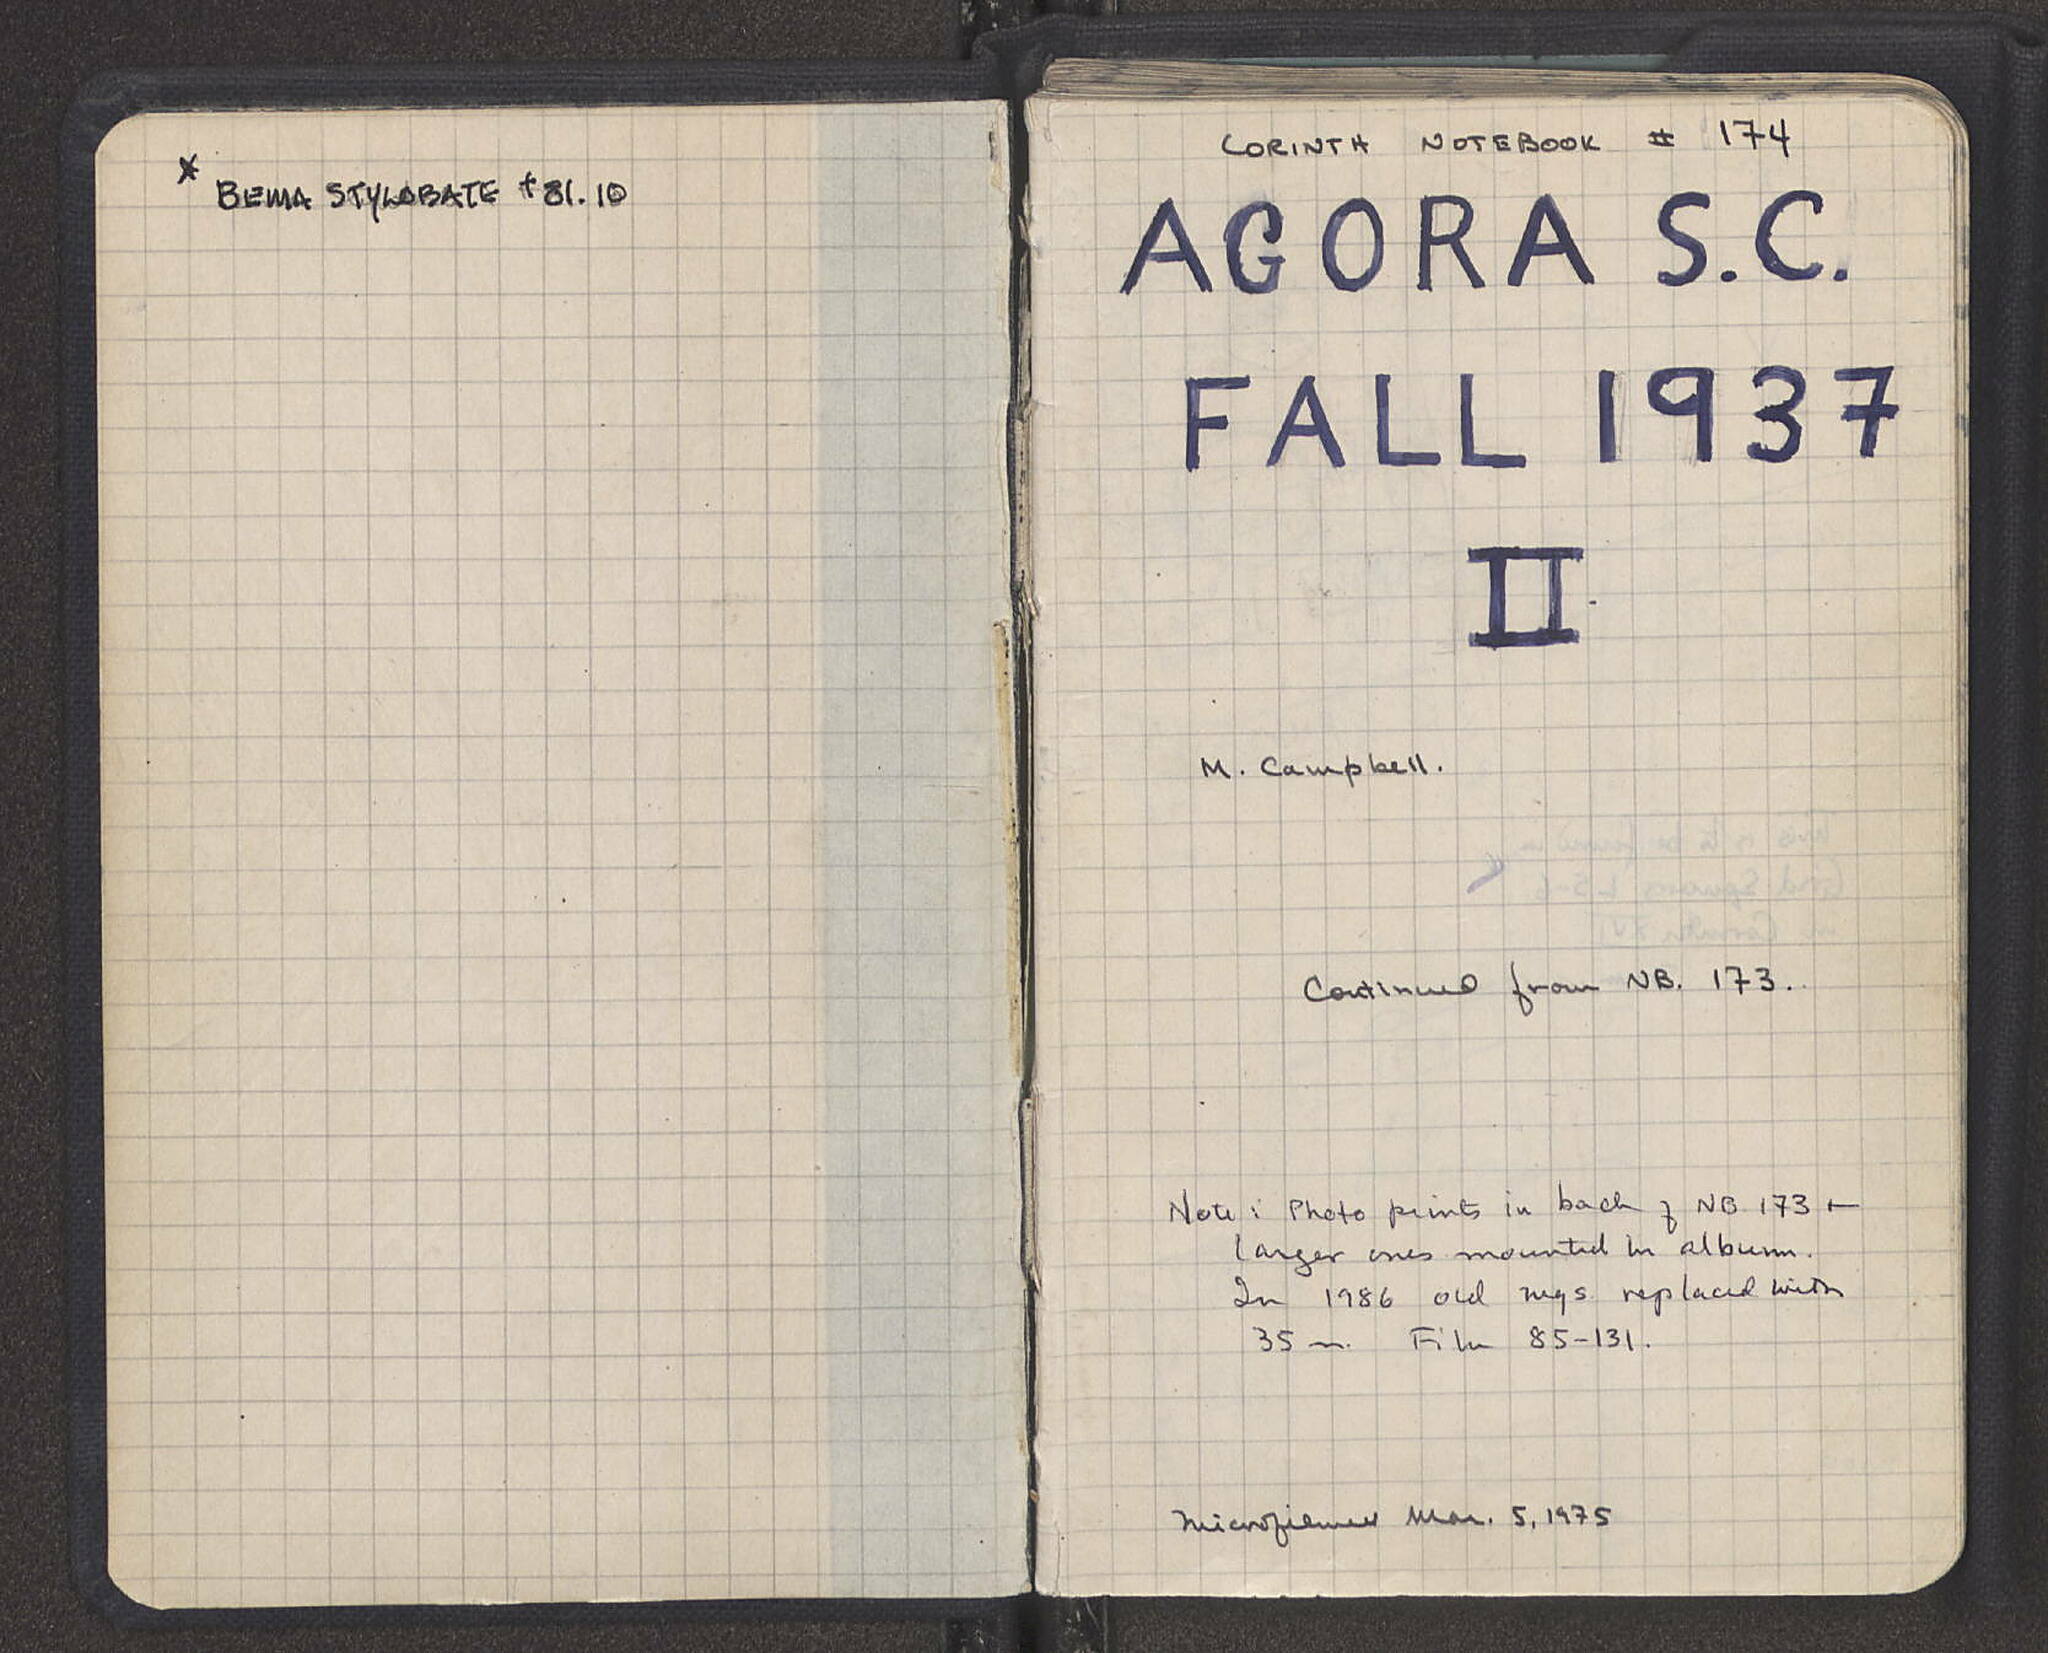 * BEMA STYLOBATE +81.10
CORINTH NOTEBOOK # 174
AGORA S.C.
FALL 1937
II
M. Campbell.
Continued from NB. 173.
Note: Photo prints in back of NB 173 +
larger ones mounted in album.
In 1986 old negs replaced with
35 m. Film 85-131.
Microfilmed Mar. 5, 1975